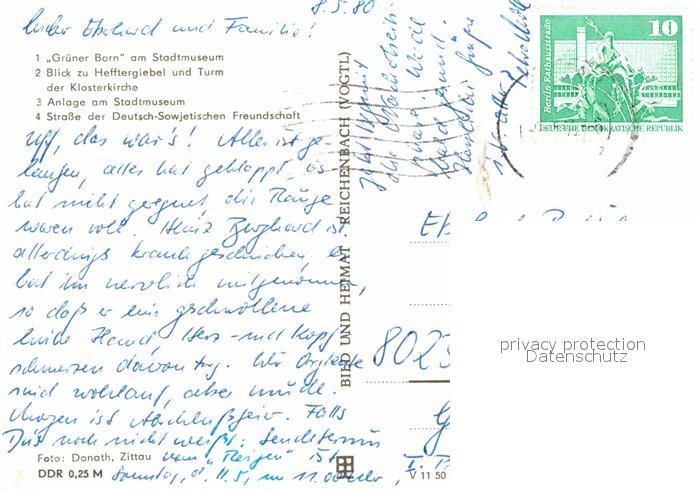 8.5.80
Lieber Eberhard und Familie!
1 „Grüner Born" am Stadtmuseum
2 Blick zu Hefftergiebel und Turm
der Klosterkirche
3 Anlage am Stadtmuseum
4 Straße der Deutsch-Sowjetischen Freundschaft
Uff, das war's! Alles ist ge-
laufen, alles hat geklappt, es
hat nicht geregnet, die Ränge
waren voll. Heinz Berghard ist
allerdings krank geschrieben, es
hat ihn nervlich mitgenommen,
so daß er eine geschwollene
linke Hand, Herz- und Kopf-
schmerzen davontrug. Wir
sind wohlauf, aber müde.
Morgen ist Abschlußfeier. Falls
Du's noch nicht weißt: Sendetermin
vom „Reigen" ist
Sonntag, d. 11.5, um 11.00 Uhr,
Foto: Donath, Zittau
DDR 0,25 M
BILD UND HEIMAT · REICHENBACH (VOGTL)
V 11 50
10
Berlin, Rathausstraße
DEUTSCHE DEMOKRATISCHE REPUBLIK
8023
privacy protection
Datenschutz